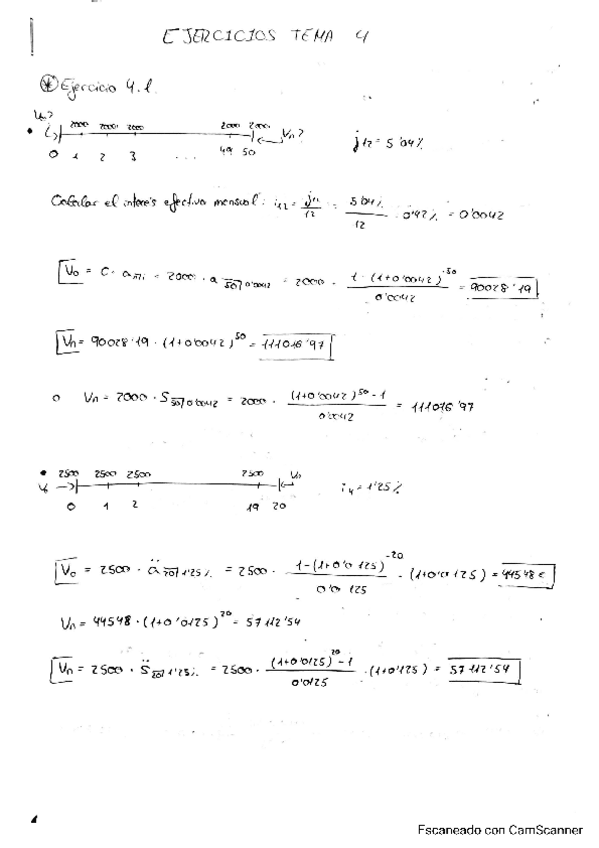 EJERCICIOS TEMA 4
Ejercicio 4.1
V₀? 2000 2000 2000 2000 2000 Vn?
0 1 2 3 ... 49 50
j12 = 5'04%
Calcular el interés efectivo mensual: i12 = j12/12 = 5'04%/12 = 0'42% = 0'0042
V₀ = C · a n┐i = 2000 · a 50┐0'0042 = 2000 · (1 - (1+0'0042)^-50)/0'0042 = 90028'19
Vn = 90028'19 · (1+0'0042)^50 = 111016'97
o Vn = 2000 · S 50┐0'0042 = 2000 · ((1+0'0042)^50 - 1)/0'0042 = 111016'97
2500 2500 2500 2500 Vn
V₀ 0 1 2 19 20
i4 = 1'25%
V₀ = 2500 · ä 20┐1'25% = 2500 · (1-(1+0'0125)^-20)/0'0125 · (1+0'0125) = 44548 €
Vn = 44548 · (1+0'0125)^20 = 57112'54
Vn = 2500 · S̈ 20┐1'25% = 2500 · ((1+0'0125)^20 - 1)/0'0125 · (1+0'125) = 57112'54
Escaneado con CamScanner